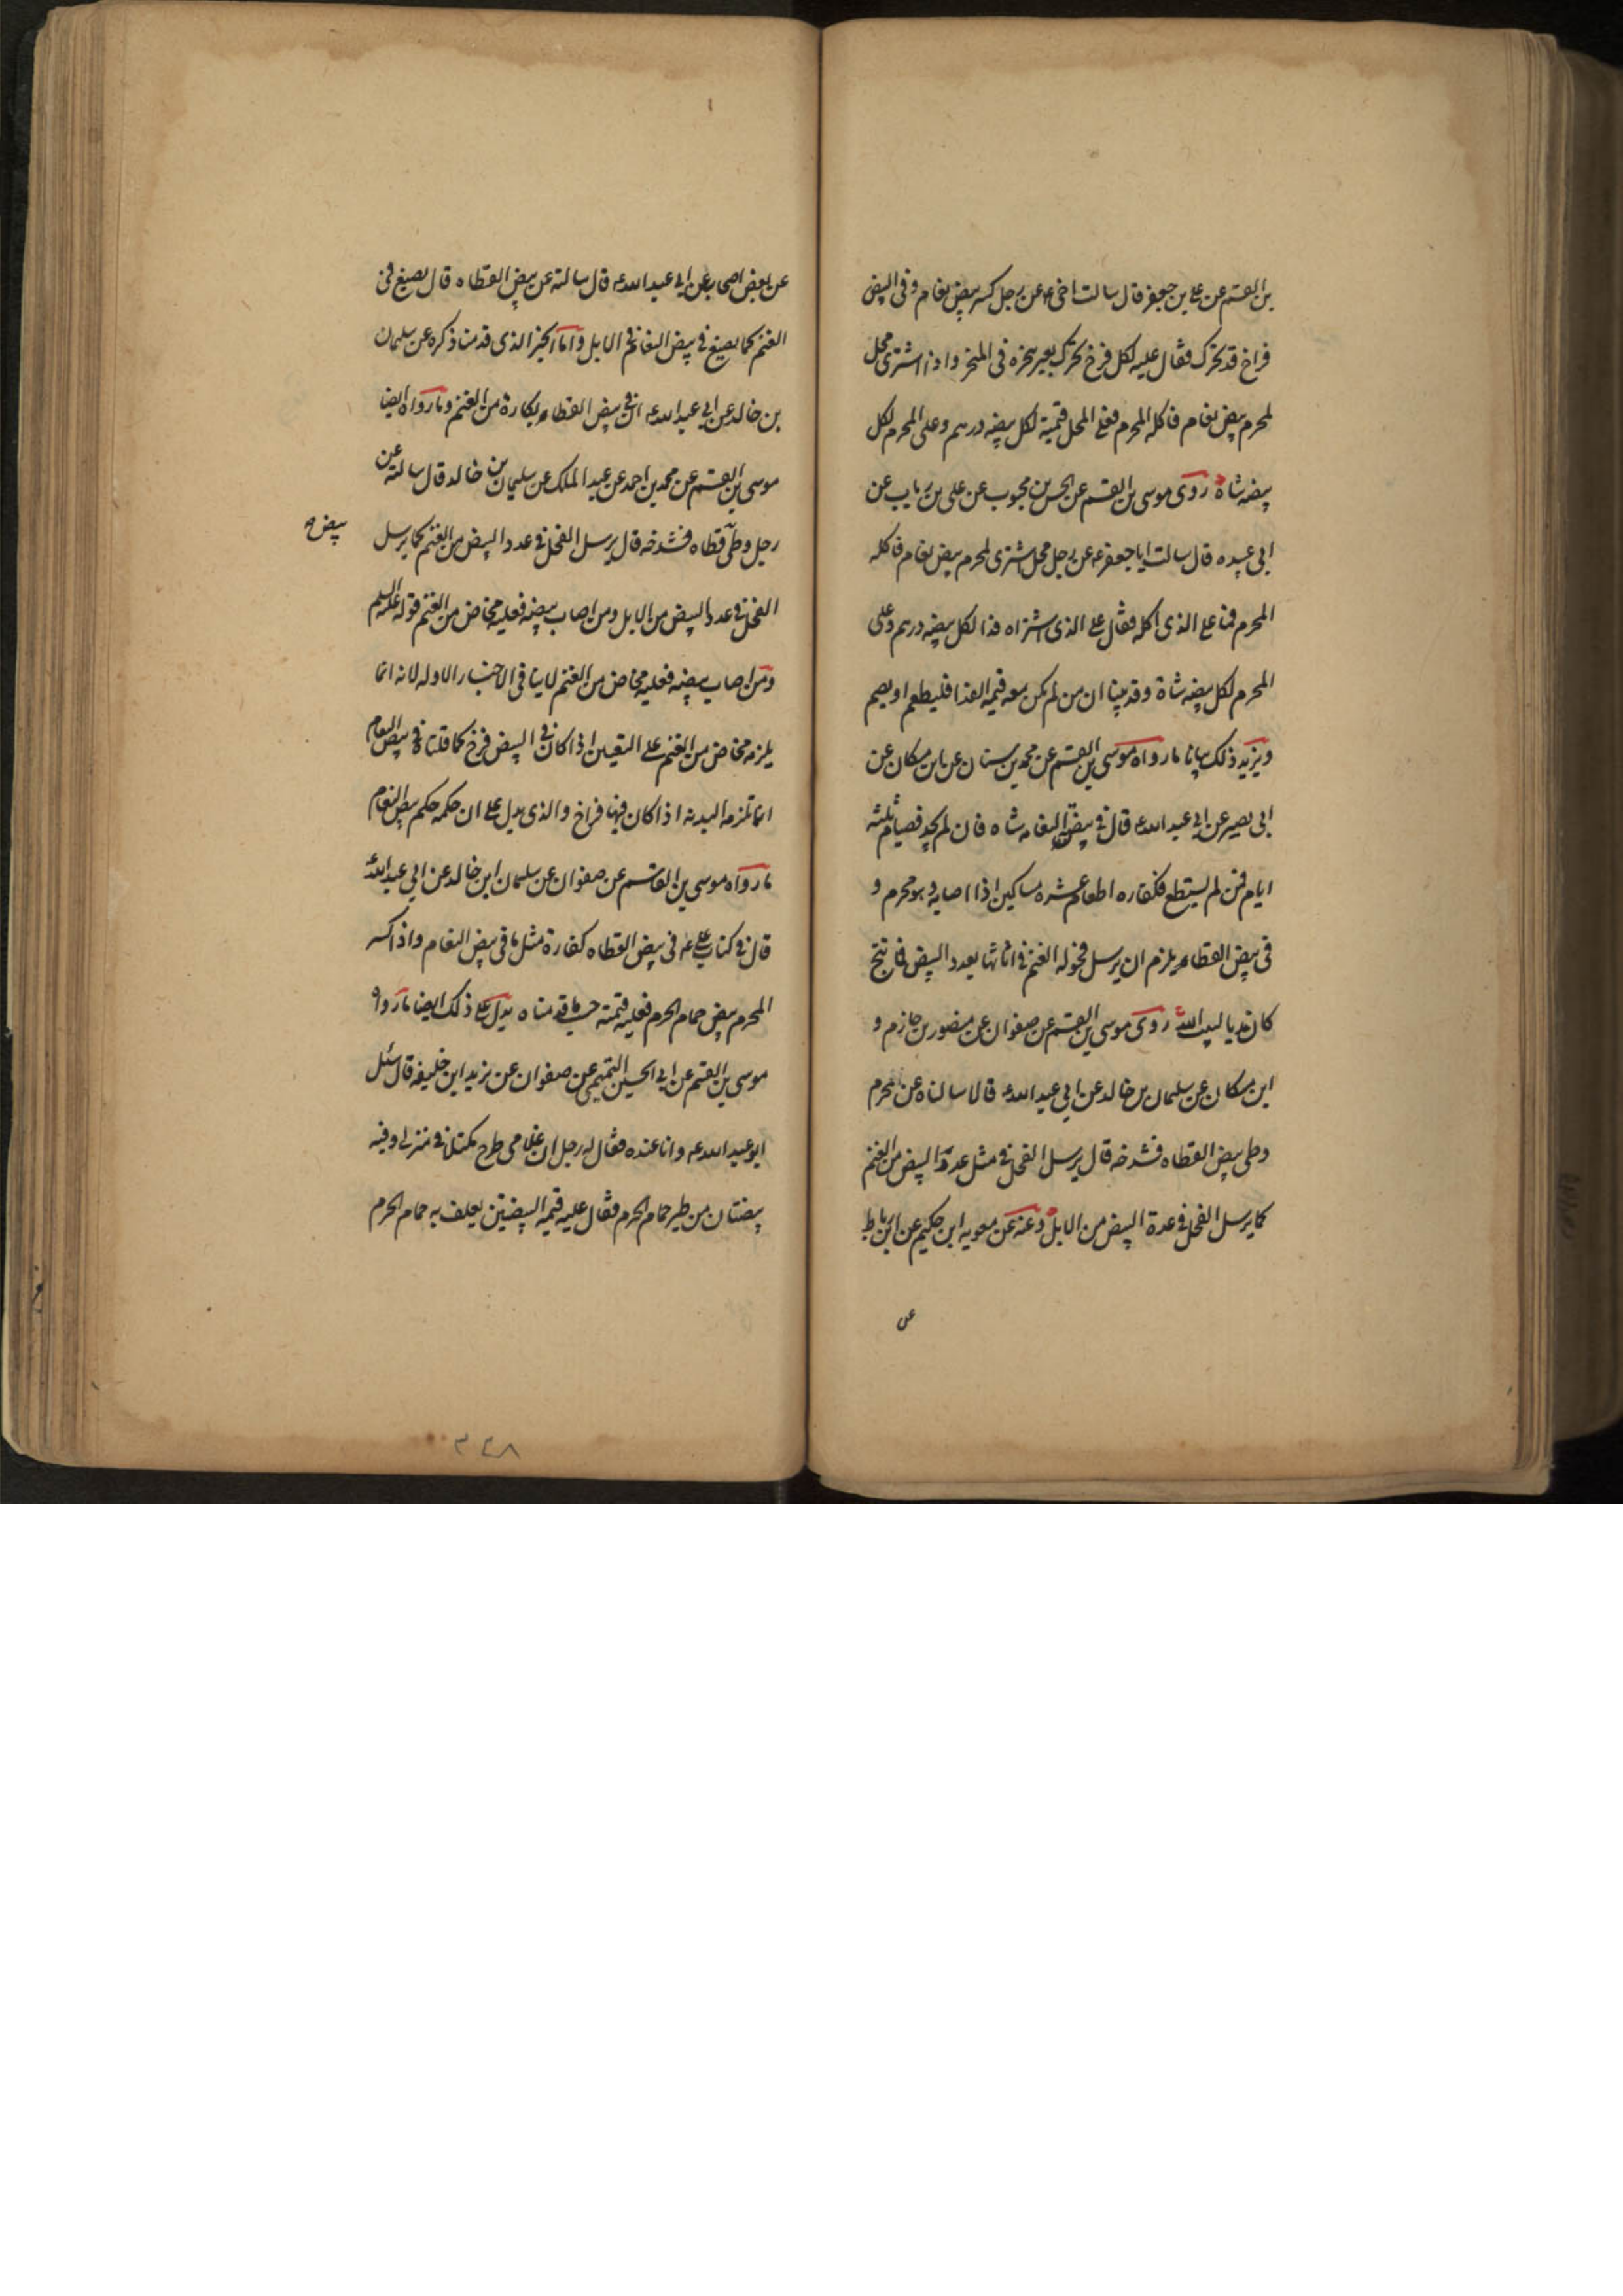 بن القسم عن علي بن جعفر قال سالت اخي ع عن رجل كسر بيض نعام و في البيض
فراخ قد تحرك فقال عليه لكل فرخ تحرك بعير ينحره في المنحر و اذا اشترى محل
لمحرم بيض نعام فاكله المحرم فعلى المحل قيمته لكل بيضه درهم و على المحرم لكل
بيضه شاة روى موسى بن القسم عن الحسن بن محبوب عن علي بن رياب عن
ابي عبيده قال سالت ابا جعفر ع عن رجل محل اشترى لمحرم بيض نعام فاكله
المحرم فما على الذي اكله فقال على الذي اشتراه فدا لكل بيضه درهم و على
المحرم لكل بيضه شاة و قد بينا ان من لم يكن معه قيمه الفدا فليطعم او يصم
و يزيد ذلك بيانا ما رواه موسى بن القسم عن محمد بن سنان عن ابن مسكان عن
ابي بصير عن ابي عبد الله ع قال في بيضة النعامه شاه فان لم يجد فصيام ثلثه
ايام فمن لم يستطع فكفاره اطعام عشره مساكين اذا اصابه و هو محرم و
في بيض القطاه يلزم ان يرسل فحوله الغنم في اناثها بعدد البيض فما نتج
كان هديا لبيت الله روى موسى بن القسم عن صفوان عن منصور بن حازم و
ابن مسكان عن سلمان بن خالد عن ابي عبد الله ع قالا سالناه عن محرم
وطى بيض القطاه فشدخه قال يرسل الفحل في مثل عدة البيض من الغنم
كما يرسل الفحل في عدة البيض من الابل و عنه عن معويه ابن حكيم عن ابن رباط
عن
عن بعض اصحابه عن ابي عبد الله ع قال سالته عن بيض القطاه قال يصنع في
الغنم كما يصنع في بيض النعام في الابل و اما الخبر الذي قدمنا ذكره عن سلمان
بن خالد عن ابي عبد الله ع ان في بيض القطاه بكارة من الغنم و ما رواه ايضا
موسى بن القسم عن محمد بن احمد عن عبد الملك عن سليمان بن خالد قال سالته عن
رجل وطى قطاه فشدخه قال يرسل الفحل في عدد البيض من الغنم كما يرسل
بيض ص
الفحل في عدد البيض من الابل و من اصاب بيضه فعليه مخاض من الغنم قوله عليه السلم
و من اصاب بيضه فعليه مخاض من الغنم لا ينافي الاخبار الاوله لانه انما
يلزمه مخاض من الغنم على التعيين اذا كان في البيض فرخ كما قلناه في بيض النعام
انما تلزمه البدنه اذا كان فيها فراخ و الذي يدل على ان حكمه حكم بيض النعام
ما رواه موسى بن القاسم عن صفوان عن سلمان ابن خالد عن ابي عبد الله ع
قال في كتاب علي ع في بيض القطاه كفارة مثل ما في بيض النعام و اذا كسر
المحرم بيض حمام الحرم فعليه قيمته حسب ما قدمناه يدل على ذلك ايضا ما رواه
موسى بن القسم عن ابي الحسين التميمي عن صفوان عن يزيد ابن خليفه قال سئل
ابو عبد الله ع و انا عنده فقال له رجل ان غلامي طرح مكتلا في منزلي و فيه
بيضتان من طير حمام الحرم فقال عليه قيمه البيضتين يعلف به حمام الحرم
۳۳۸